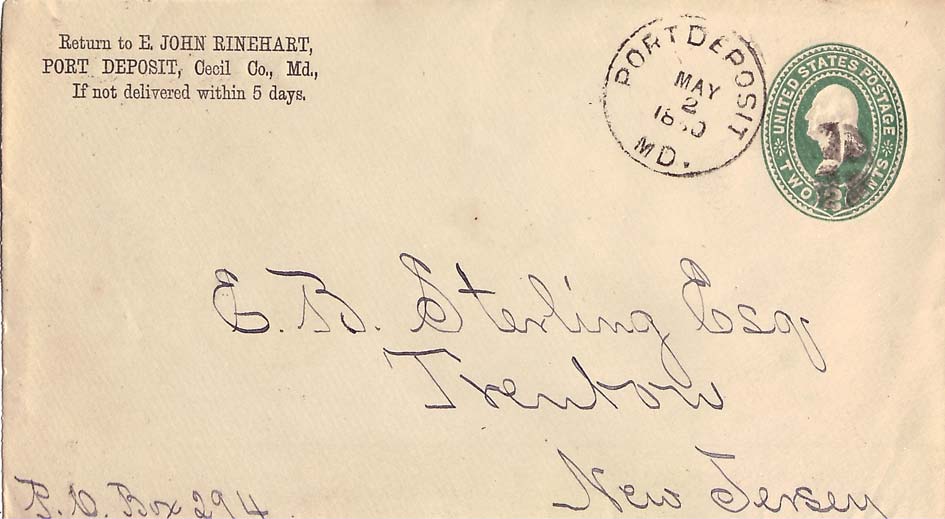 Return to E. JOHN RINEHART,
PORT DEPOSIT, Cecil Co., Md.,
If not delivered within 5 days.
PORT DEPOSIT
MAY
2
MD.
UNITED STATES POSTAGE
TWO CENTS
2
E. B. Sterling Esq.
Trenton
New Jersey
P. O. Box 294